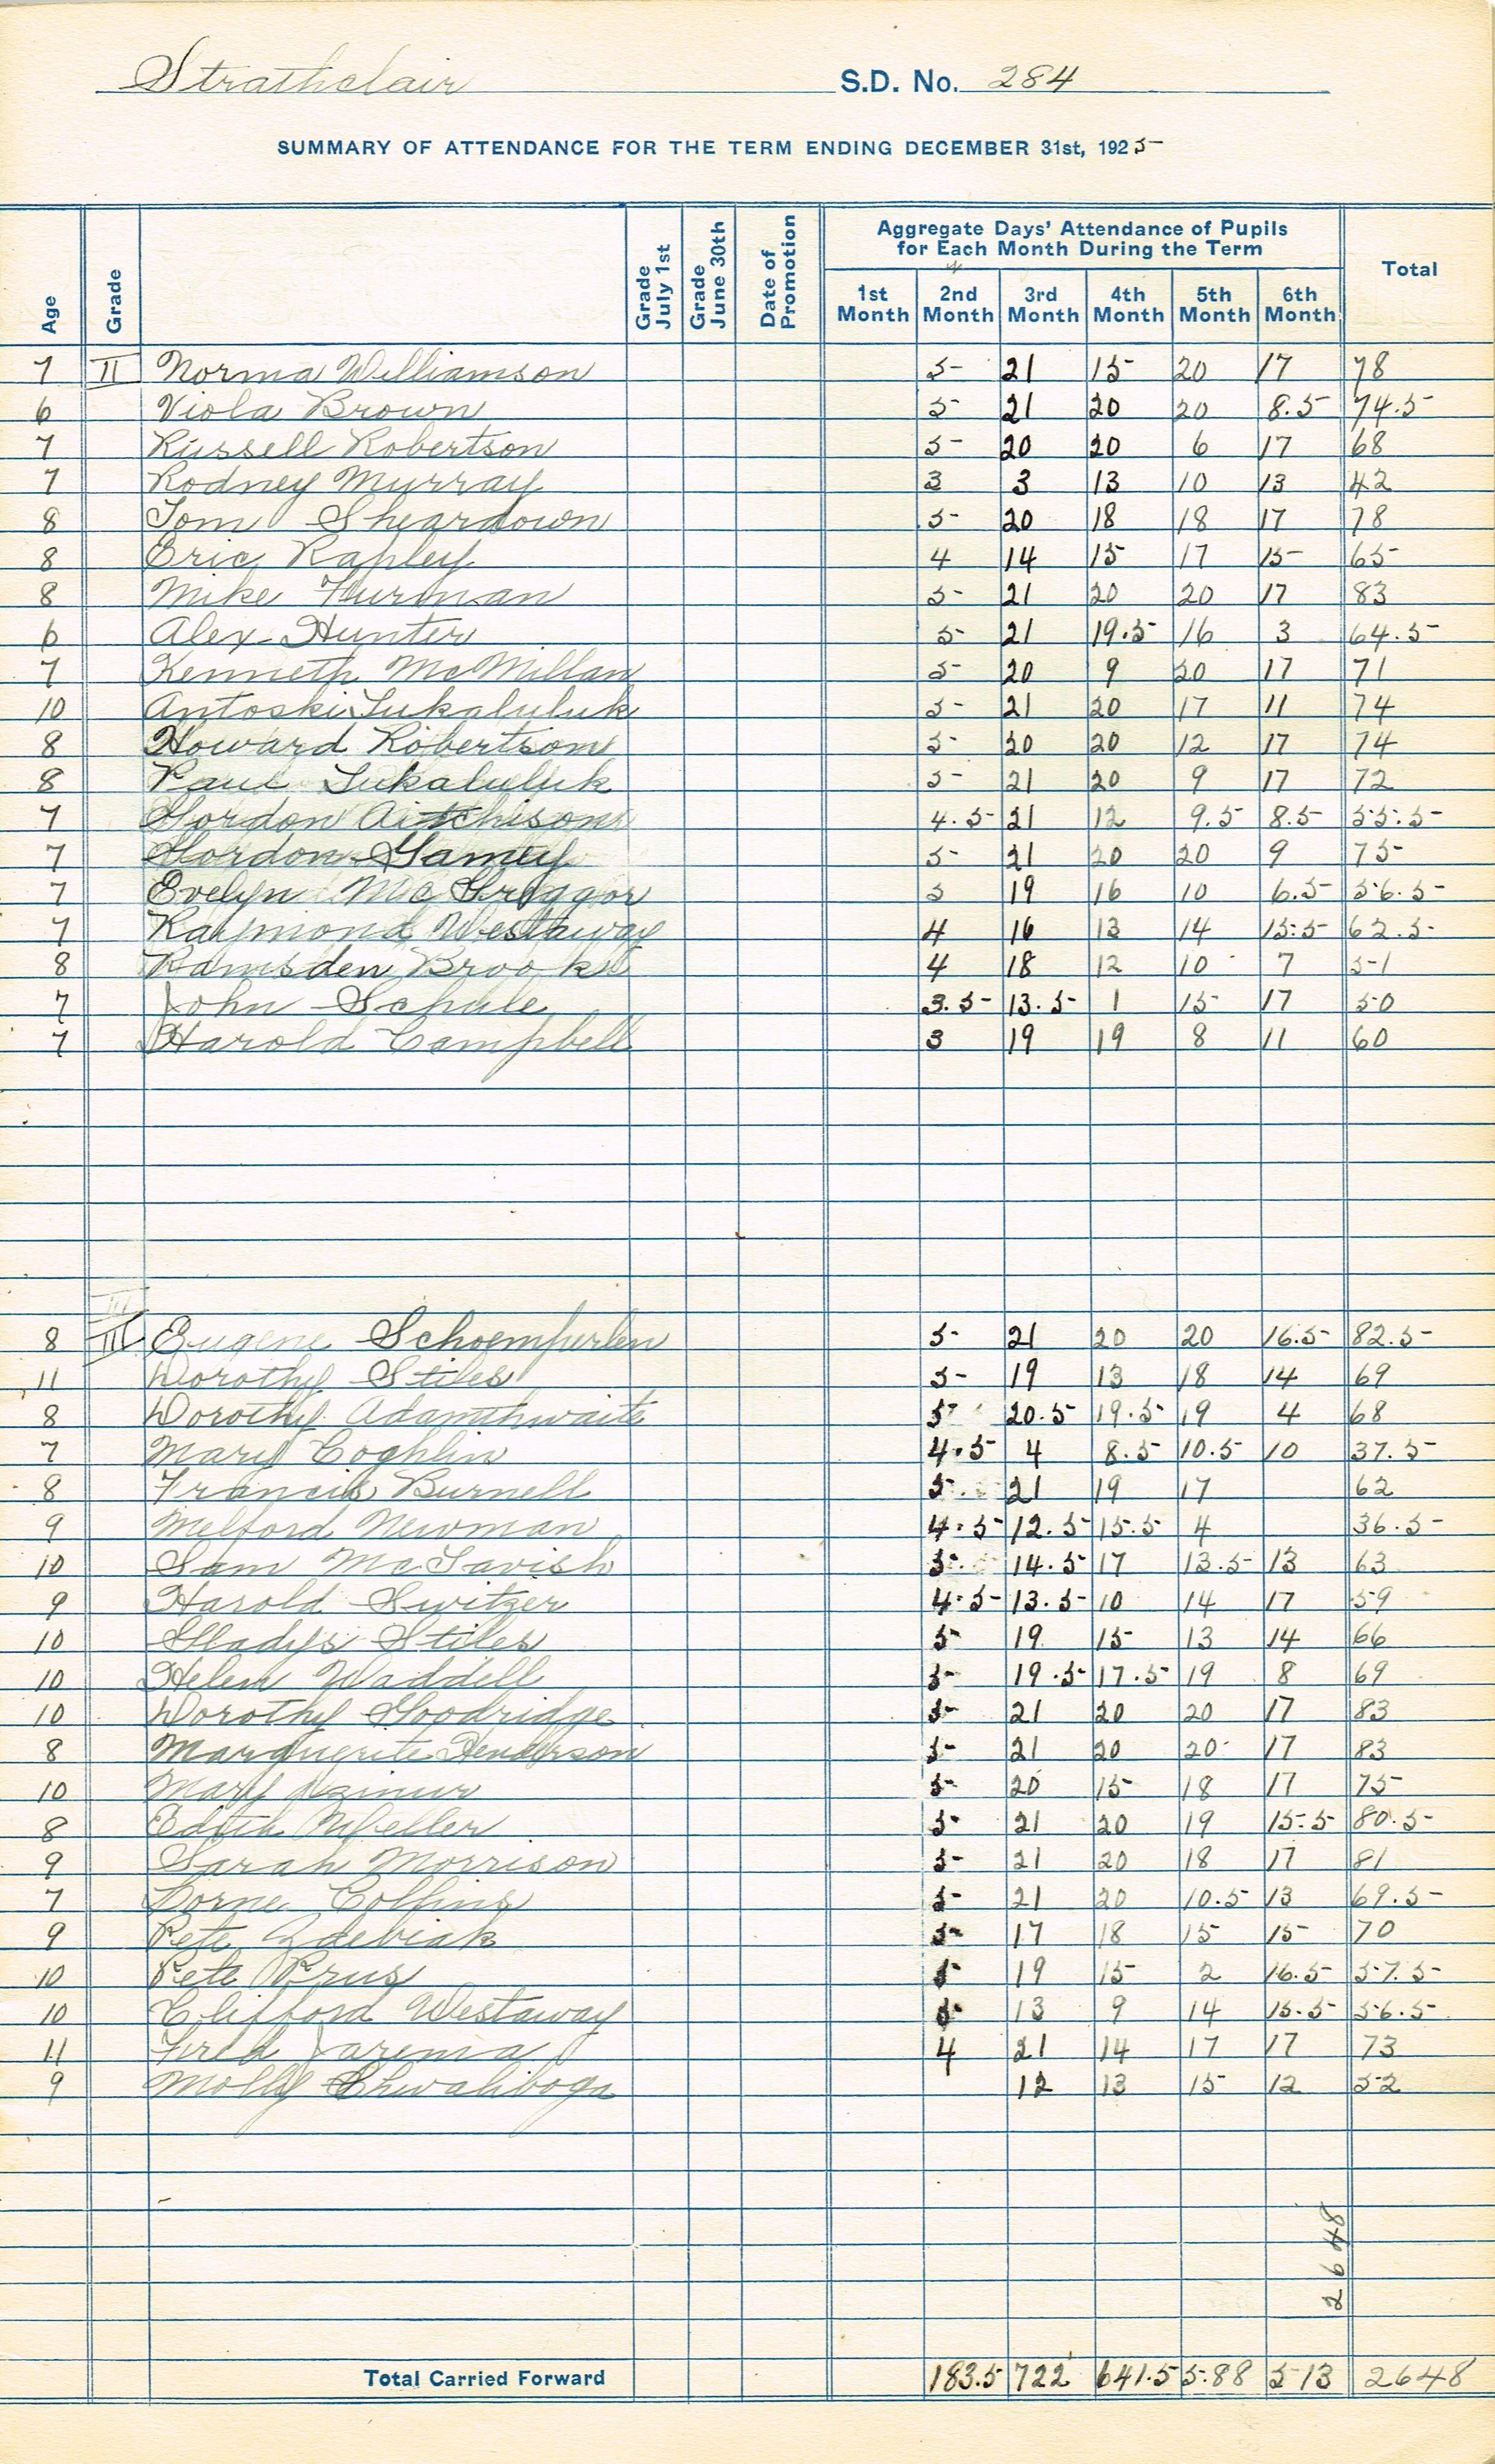 Strathclair S.D. No. 284
SUMMARY OF ATTENDANCE FOR THE TERM ENDING DECEMBER 31st, 1925
Age Grade Grade July 1st Grade June 30th Date of Promotion Aggregate Days' Attendance of Pupils for Each Month During the Term Total
1st Month 2nd Month 3rd Month 4th Month 5th Month 6th Month
7 II Norma Williamson 5 21 15 20 17 78
6 Viola Brown 5 21 20 20 8.5 74.5
7 Russell Robertson 5 20 20 6 17 68
7 Rodney Murray 3 3 13 10 13 42
8 Tom Sheardown 5 20 18 18 17 78
8 Eric Rapley 4 14 15 17 15 65
8 Mike Furman 5 21 20 20 17 83
6 Alex Hunter 5 21 19.5 16 3 64.5
7 Kenneth McMillan 5 20 9 20 17 71
10 Antoski Lukaluluk 5 21 20 17 11 74
8 Howard Robertson 5 20 20 12 17 74
8 Paul Lukaluluk 5 21 20 9 17 72
7 Gordon Aitchison 4.5 21 12 9.5 8.5 55.5
7 Gordon Gamey 5 21 20 20 9 75
7 Evelyn McGreggor 5 19 16 10 6.5 56.5
7 Raymond Westaway 4 16 13 14 15.5 62.5
8 Ramsden Brook 4 18 12 10 7 51
7 John Schule 3.5 13.5 1 15 17 50
7 Harold Campbell 3 19 19 8 11 60
III
8 III Eugene Schoemperlen 5 21 20 20 16.5 82.5
11 Dorothy Stiles 5 19 13 18 14 69
8 Dorothy Adamthwaite 5 20.5 19.5 19 4 68
7 Mary Coghlin 4.5 4 8.5 10.5 10 37.5
8 Francis Burnell 5 21 19 17 62
9 Melford Newman 4.5 12.5 15.5 4 36.5
10 Sam McTavish 5 14.5 17 13.5 13 63
9 Harold Switzer 4.5 13.5 10 14 17 59
10 Gladys Stiles 5 19 15 13 14 66
10 Helen Waddell 5 19.5 17.5 19 8 69
10 Dorothy Goodridge 5 21 20 20 17 83
8 Marguerite Henderson 5 21 20 20 17 83
10 Mary 5 20 15 18 17 75
8 Edith Mueller 5 21 20 19 15.5 80.5
9 Sarah Morrison 5 21 20 18 17 81
7 Lorne Collins 5 21 20 10.5 13 69.5
9 Pete Zdebiak 5 17 18 15 15 70
10 Pete Prus 5 19 15 2 16.5 57.5
10 Clifford Westaway 5 13 9 14 15.5 56.5
11 Fred Jarema 4 21 14 17 17 73
9 Molly 12 13 15 12 52
2648
Total Carried Forward 183.5 722 641.5 588 513 2648